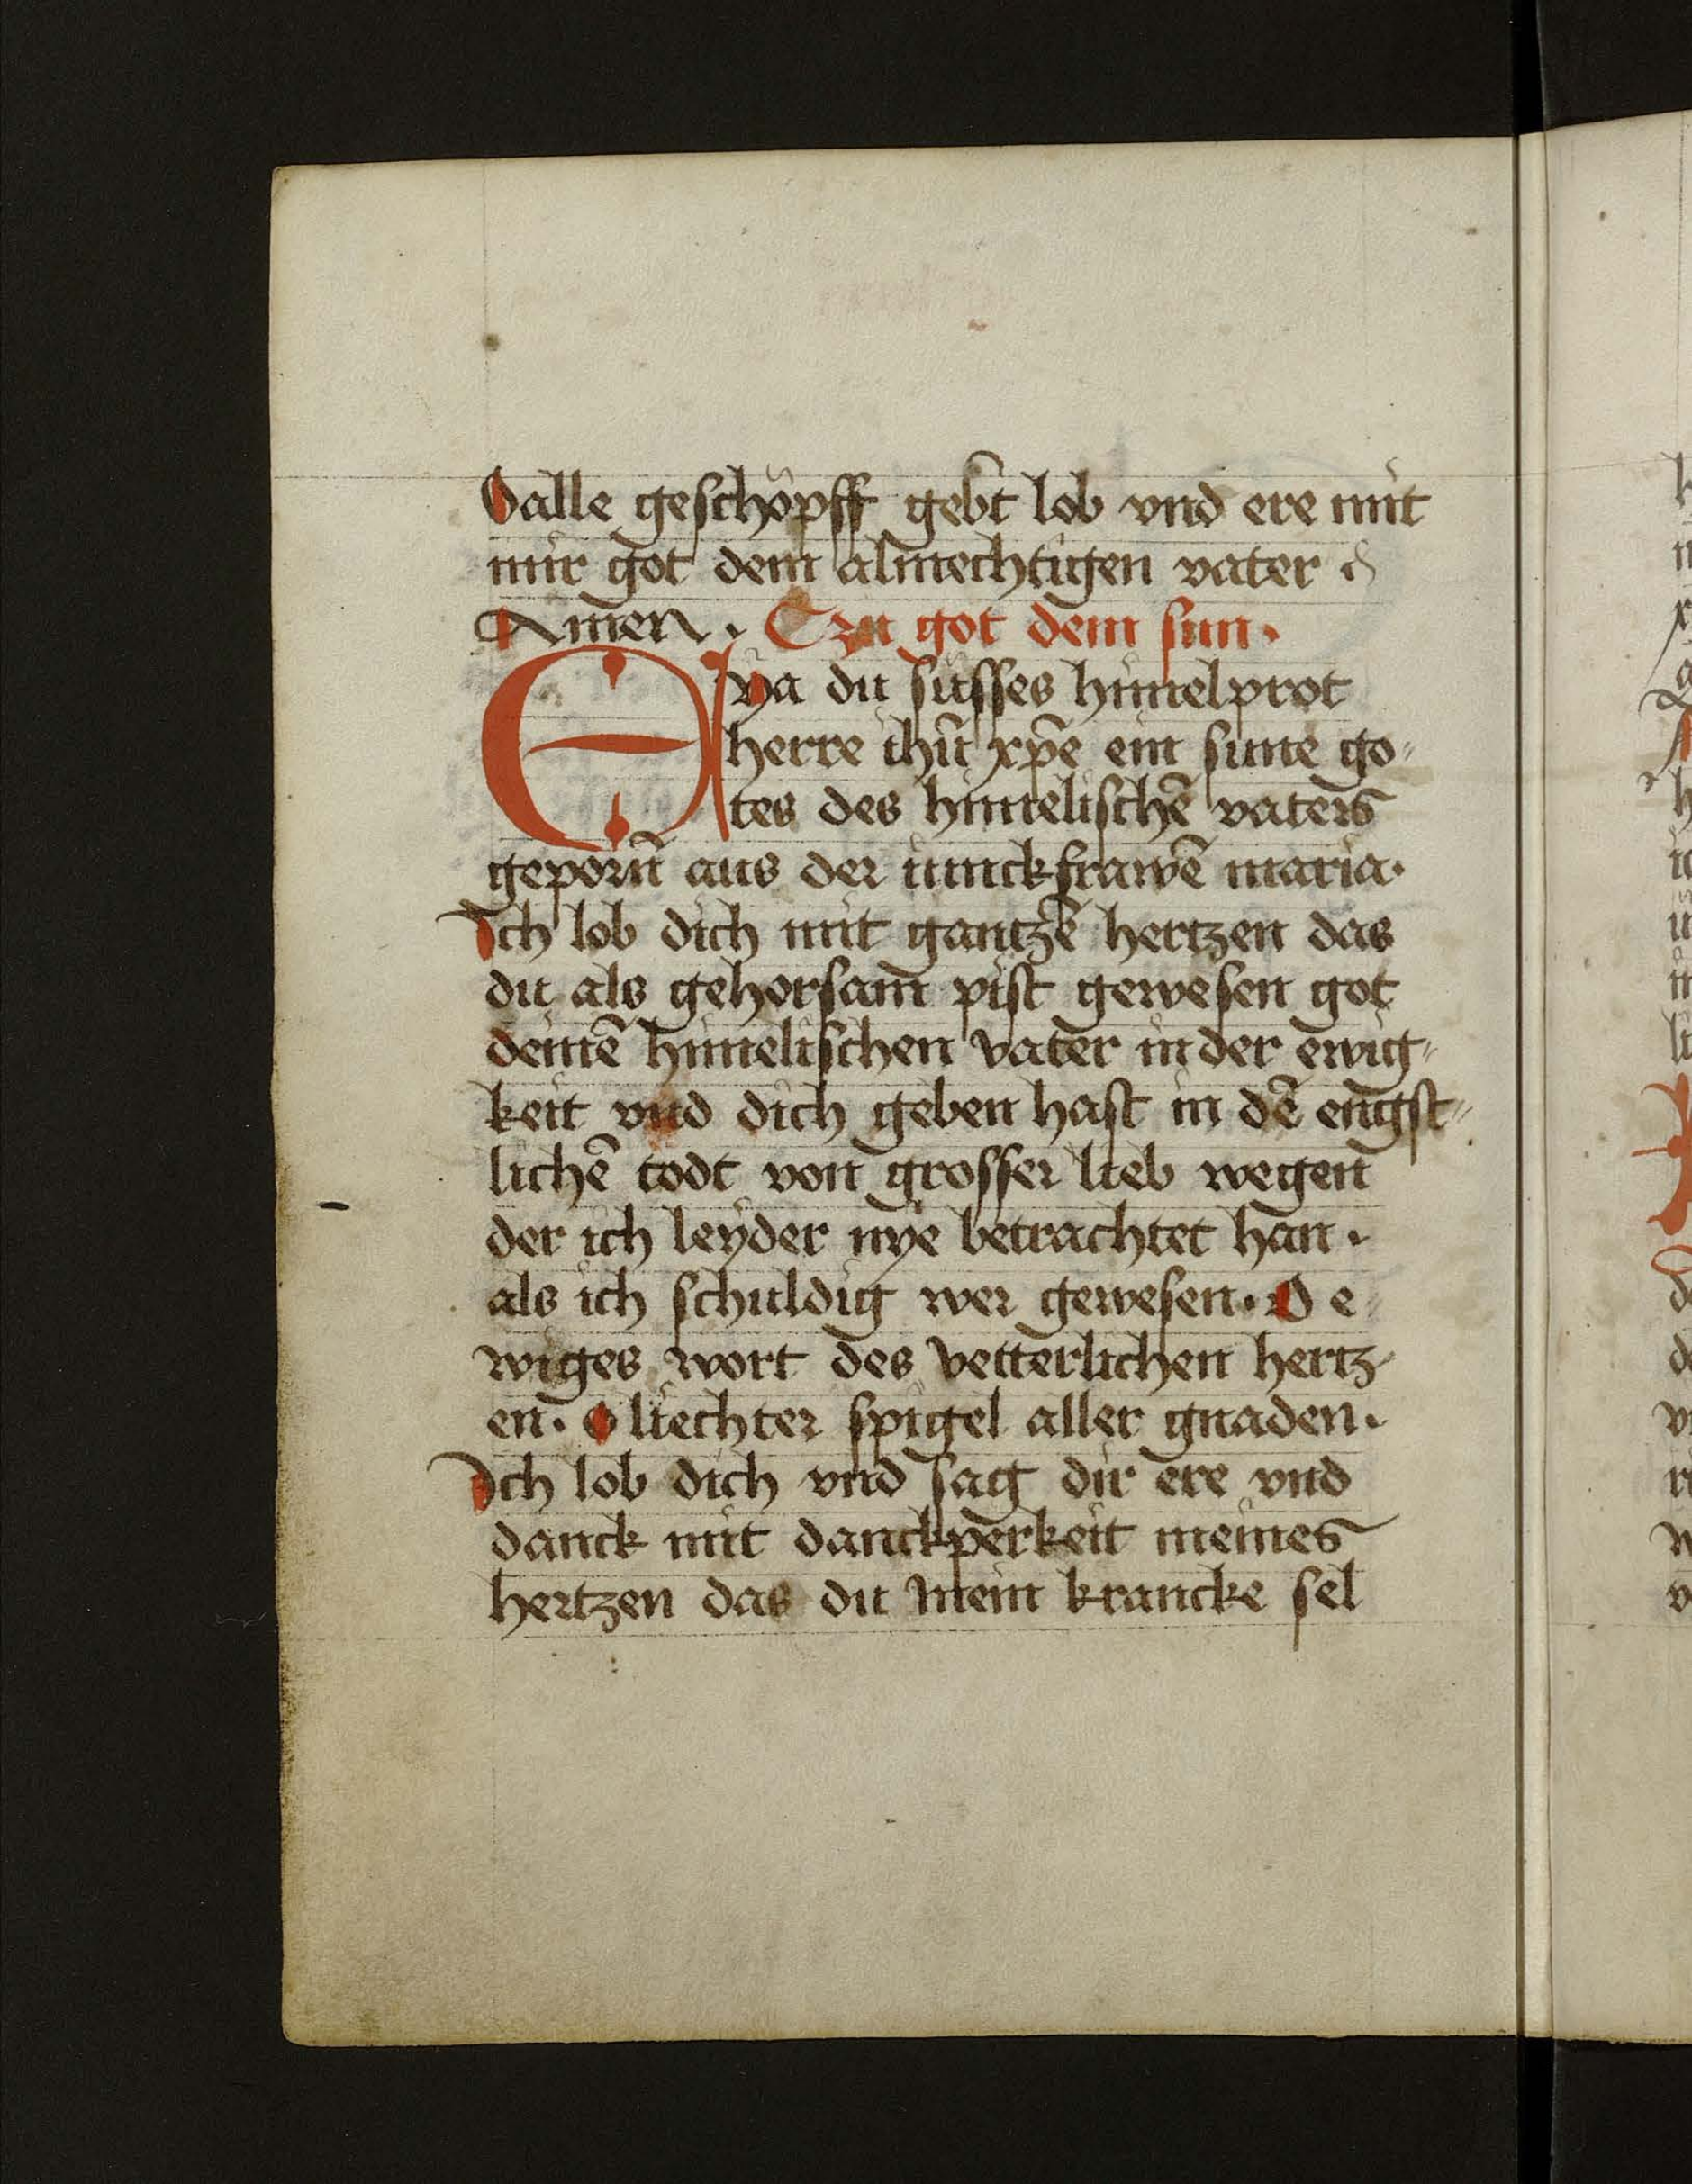 O alle geschöpff gebt̄ lob vnd ere mit
mir got dem almechtigen vater
Amen. Czu got dem sun.
Eya du süsses himelprot
herre ihū xp̄e ein sune go„
tes des himelischē vaters
geporn̄ aus der iunckfrawē maria.
Ich lob dich mit gantzē hertzen das
du als gehorsam̄ pist gewesen got
deinē himelischen vater in der ewig„
keit vnd dich geben hast in dē engst„
lichē todt von grosser lieb wegen
der ich leyder nye betrachtet han.
als ich schuldig wer gewesen. O e„
wiges wort des vetterlichen hertz„
en. O liechter spigel aller gnaden.
Ich lob dich vnd sag dir ere vnd
danck mit danckperkeit meines
hertzen das du mein krancke sel